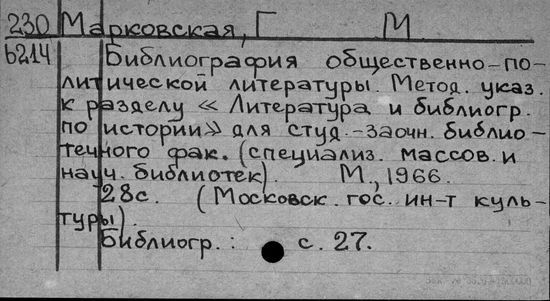 230 Марковская, Г М.
б214 Библиография общественно-по-
литической литературы. Метод. указ.
к разделу « Литература и библиогр.
по истории» для студ.-заочн. библио-
течного фак. (специализ. массов. и
науч. библиотек). М., 1966.
28с. (Московск. гос. ин-т куль-
туры).
Библиогр.: с. 27.